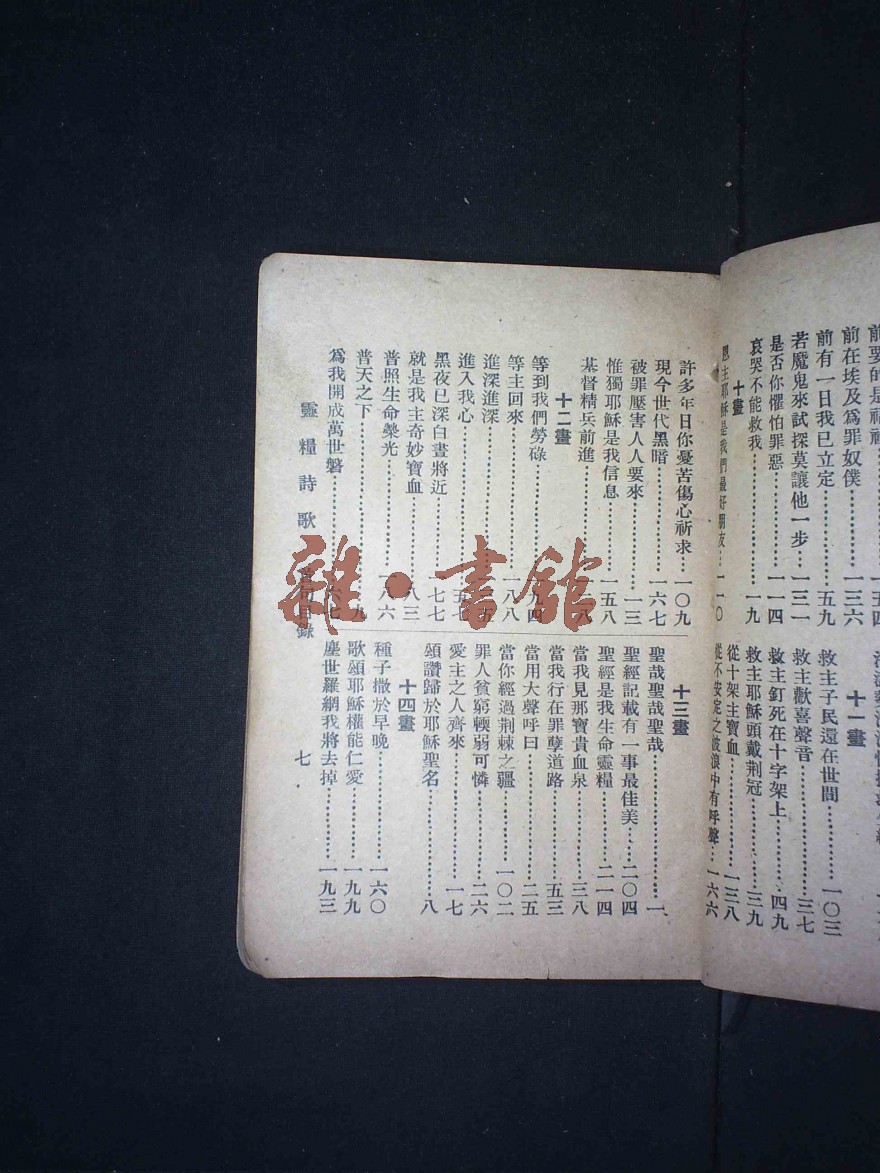 前有一日我已立定……五九
前在埃及爲罪奴僕……一三六
若魔鬼來試探莫讓他一步…一三一
是否你懼怕罪惡……一一四
哀哭不能救我……一九
十畫
恩主耶穌是我們最好朋友…一一〇
十一畫
救主子民還在世間……一〇三
救主歡喜聲音……三七
救主釘死在十字架上……四九
救主耶穌頭戴荆冠……三九
從十架主寶血……一三八
從不安定之波浪中有呼聲…一六六
許多年日你憂苦傷心祈求…一〇九
現今世代黑暗……一六七
被罪壓害人人要來……一三
惟獨耶穌是我信息……一五八
基督精兵前進……二八
十二畫
等到我們勞碌……九四
等主回來……一八八
進深進深
進入我心……五七
黑夜已深白晝將近……一七七
就是我主奇妙寶血……八三
普照生命榮光……八六
普天之下……九
爲我開成萬世磐……六七
十三畫
聖哉聖哉聖哉……一
聖經記載有一事最佳美…二〇四
聖經是我生命靈糧……二一四
當我見那寶貴血泉……三八
當我行在罪孽道路……五三
當用大聲呼曰……二五
當你經過荆棘之疆……一〇二
罪人貧窮輭弱可憐……二六
愛主之人齊來……一七
頌讚歸於耶穌聖名……八
十四畫
種子撒於早晚……一六〇
歌頌耶穌權能仁愛……一九九
塵世羅網我將去掉……一九三
靈糧詩歌 首句目錄
七
雜·書館